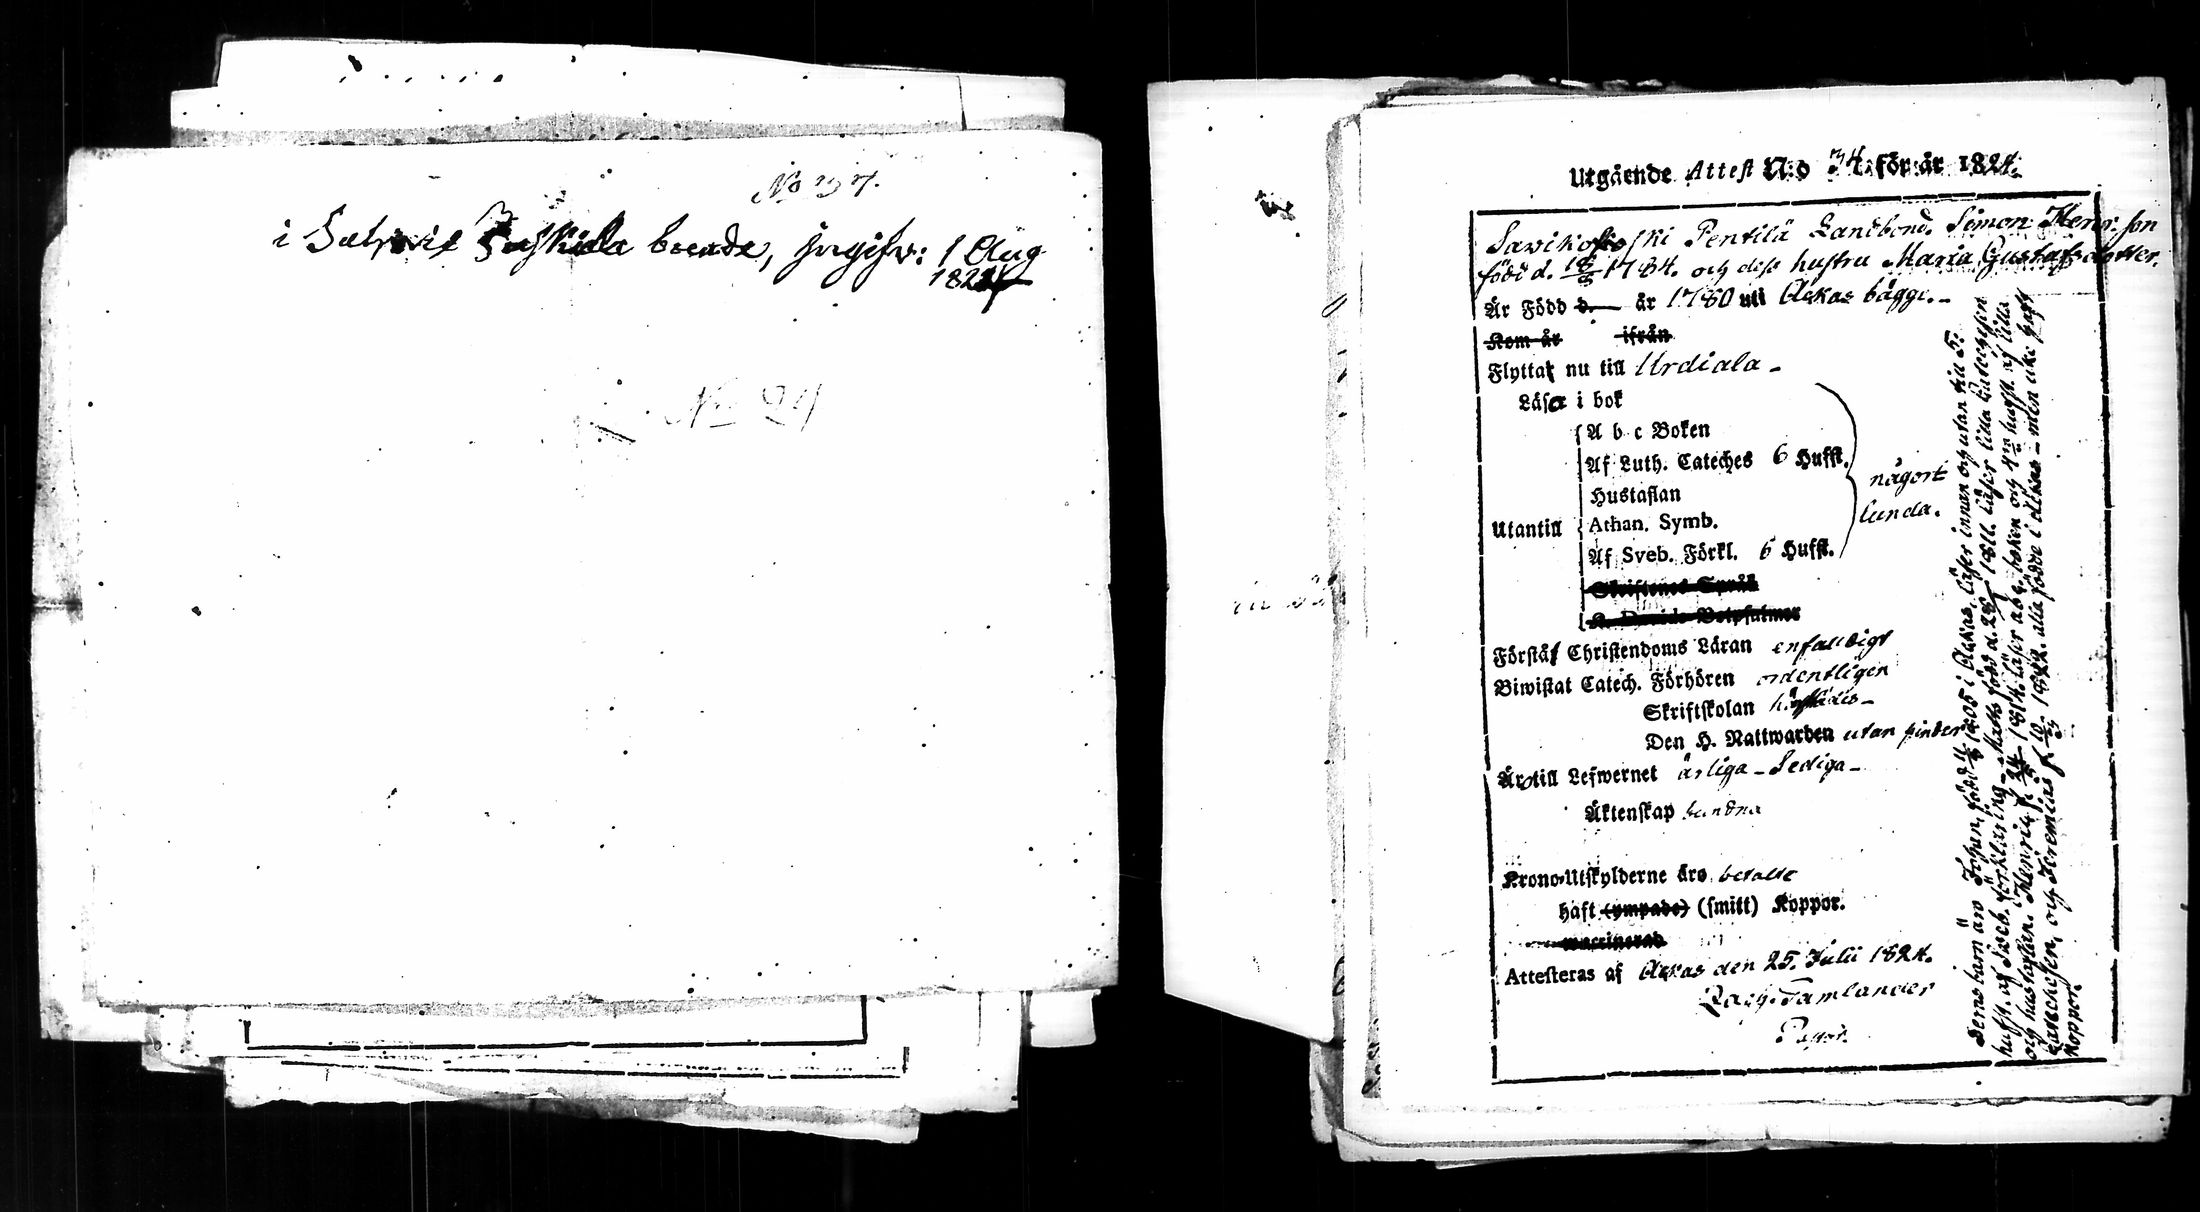 No 37.
i boende, 1 Aug
1824
No 29
Utgående Attest N:o 34. för år 1824.
Savikoski Pentilä Landbond. Simon Henr: son
född d. 1784. och dess hustru Maria Gustafsdotter.
Är Född d. år 1780 uti Ackas bägge.
Kom år ifrån
Flyttat nu till Urdiala
Läsa i bok
A b c Boken
Af Luth. Cateches 6 Hufst.
Hustaflan
någort
lunda.
Utantill Athan. Symb.
Af Sveb. Förkl. 6 Hufst.
Skriftenes Språk
K. Davids Botpsalmer
Förstår Christendoms Läran enfaldigt
Biwistat Catech. Förhören ordentligen
Skriftskolan
Den H. Nattwarden utan hinder
Äro till Lefwernet ärliga - Sediga -
Äktenskap bundna
Krono-Utskylderne äro betalte
haft (ympade) (smitt) Koppor.
vaccinerad
Attesteras af Ackas den 25. Julii 1824.
Zach. Tamlander
Pastor.
Deras barn äro Johan, född 1805 i Ackas, läser innan och utan till 5:
hufst. af Sveb. förklaring - Matts född d. 28 1811. läser lilla Catechesen
och hustaflan. Henric, f. 24 1814. läser abc. boken och 4ra hufst. af lilla
Catechesen, och Jeremias f. 10 1822. alla födde i Ackas - men icke haft
Koppor.